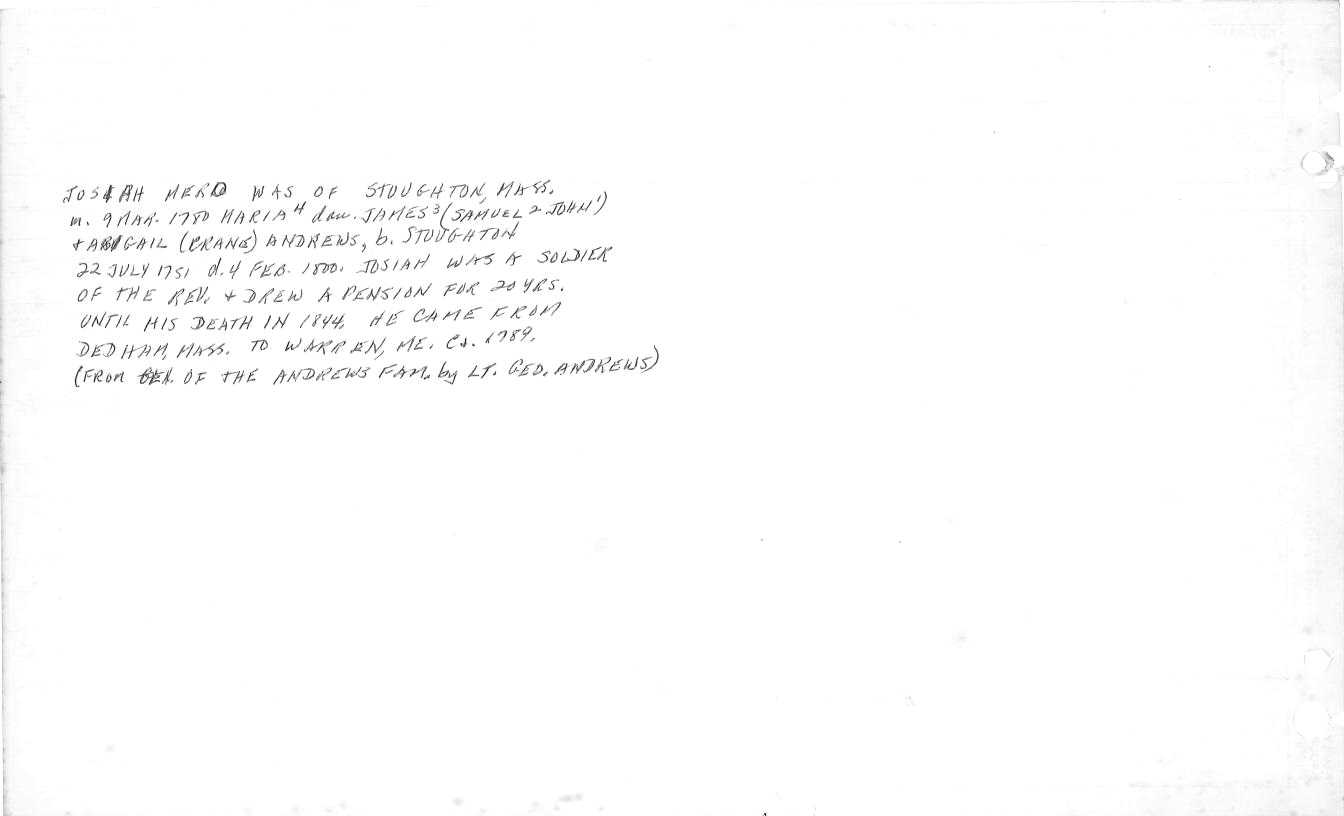 JOSIAH MERO WAS OF STOUGHTON, MASS.
m. 9 MAR. 1780 MARIA⁴ dau. JAMES³ (SAMUEL² JOHN¹)
+ ABIGAIL (CRANE) ANDREWS, b. STOUGHTON
22 JULY 1751 d. 4 FEB. 1800. JOSIAH WAS A SOLDIER
OF THE REV. + DREW A PENSION FOR 20 YRS.
UNTIL HIS DEATH IN 1844. HE CAME FROM
DEDHAM, MASS. TO WARREN, ME. Ca. 1789.
(FROM GEN. OF THE ANDREWS FAM. by LT. GEO. ANDREWS)